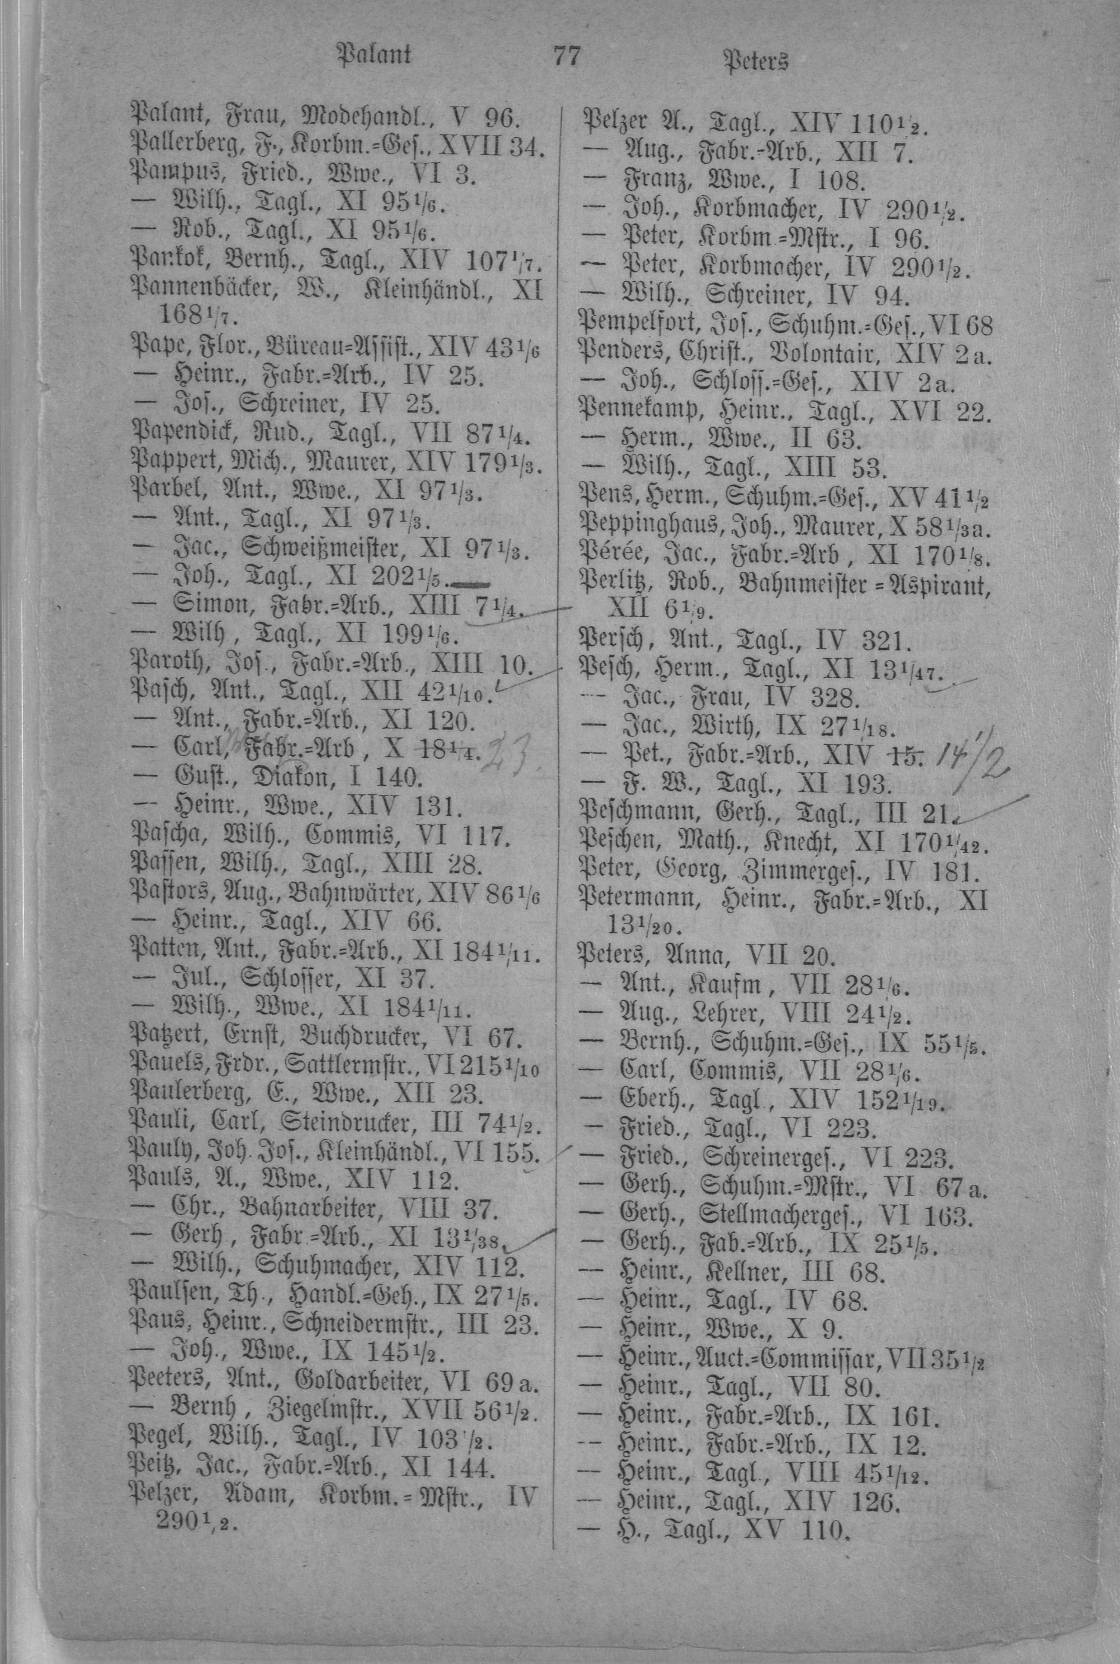 Palant 77 Peters
Palant, Frau, Modehandl., V 96.
Pallerberg, F., Korbm.=Ges., XVII 34.
Pampus, Fried., Wwe., VI 3.
— Wilh., Tagl., XI 95 1/6.
— Rob., Tagl., XI 95 1/6.
Pankok, Bernh., Tagl., XIV 107 1/7.
Pannenbäcker, W., Kleinhändl., XI
168 1/7.
Pape, Flor., Büreau=Assist., XIV 43 1/6
— Heinr., Fabr.=Arb., IV 25.
— Jos., Schreiner, IV 25.
Papendick, Rud., Tagl., VII 87 1/4.
Pappert, Mich., Maurer, XIV 179 1/3.
Parbel, Ant., Wwe., XI 97 1/3.
— Ant., Tagl., XI 97 1/3.
— Jac., Schweißmeister, XI 97 1/3.
— Joh., Tagl., XI 202 1/5.
— Simon, Fabr.=Arb., XIII 7 1/4.
— Wilh, Tagl., XI 199 1/6.
Paroth, Jos., Fabr.=Arb., XIII 10.
Pasch, Ant., Tagl., XII 42 1/10.
— Ant., Fabr.=Arb., XI 120.
— Carl, Fabr.=Arb, X 18 1/4. 23.
— Gust., Diakon, I 140.
— Heinr., Wwe., XIV 131.
Pascha, Wilh., Commis, VI 117.
Passen, Wilh., Tagl., XIII 28.
Pastors, Aug., Bahnwärter, XIV 86 1/6
— Heinr., Tagl., XIV 66.
Patten, Ant., Fabr.=Arb., XI 184 1/11.
— Jul., Schlosser, XI 37.
— Wilh., Wwe., XI 184 1/11.
Patzert, Ernst, Buchdrucker, VI 67.
Pauels, Frdr., Sattlermstr., VI 215 1/10
Paulerberg, E., Wwe., XII 23.
Pauli, Carl, Steindrucker, III 74 1/2.
Pauly, Joh. Jos., Kleinhändl., VI 155.
Pauls, A., Wwe., XIV 112.
— Chr., Bahnarbeiter, VIII 37.
— Gerh, Fabr.=Arb., XI 13 1/38.
— Wilh., Schuhmacher, XIV 112.
Paulsen, Th., Handl.=Geh., IX 27 1/5.
Paus, Heinr., Schneidermstr., III 23.
— Joh., Wwe., IX 145 1/2.
Peeters, Ant., Goldarbeiter, VI 69 a.
— Bernh, Ziegelmstr., XVII 56 1/2.
Pegel, Wilh., Tagl., IV 103 1/2.
Peitz, Jac., Fabr.=Arb., XI 144.
Pelzer, Adam, Korbm.=Mstr., IV
290 1/2.
Pelzer A., Tagl., XIV 110 1/2.
— Aug., Fabr.=Arb., XII 7.
— Franz, Wwe., I 108.
— Joh., Korbmacher, IV 290 1/2.
— Peter, Korbm=Mstr., I 96.
— Peter, Korbmacher, IV 290 1/2.
— Wilh., Schreiner, IV 94.
Pempelfort, Jos., Schuhm.=Ges., VI 68
Penders, Christ., Volontair, XIV 2 a.
— Joh., Schloss.=Ges., XIV 2 a.
Pennekamp, Heinr., Tagl., XVI 22.
— Herm., Wwe., II 63.
— Wilh., Tagl., XIII 53.
Pens, Herm., Schuhm.=Ges., XV 41 1/2
Peppinghaus, Joh., Maurer, X 58 1/3 a.
Pérée, Jac., Fabr.=Arb, XI 170 1/8.
Perlitz, Rob., Bahnmeister=Aspirant,
XII 6 1/9.
Persch, Ant., Tagl., IV 321.
Pesch, Herm., Tagl., XI 13 1/47.
— Jac., Frau, IV 328.
— Jac., Wirth, IX 27 1/18.
— Pet., Fabr.=Arb., XIV 15. 14 1/2
— F. W., Tagl., XI 193.
Peschmann, Gerh., Tagl., III 21.
Peschen, Math., Knecht, XI 170 1/42.
Peter, Georg, Zimmerges., IV 181.
Petermann, Heinr., Fabr.=Arb., XI
13 1/20.
Peters, Anna, VII 20.
— Ant., Kaufm, VII 28 1/6.
— Aug., Lehrer, VIII 24 1/2.
— Bernh., Schuhm.=Ges., IX 55 1/5.
— Carl, Commis, VII 28 1/6.
— Eberh., Tagl, XIV 152 1/19.
— Fried., Tagl., VI 223.
— Fried., Schreinerges., VI 223.
— Gerh., Schuhm.=Mstr., VI 67 a.
— Gerh., Stellmacherges., VI 163.
— Gerh., Fab.=Arb., IX 25 1/5.
— Heinr., Kellner, III 68.
— Heinr., Tagl., IV 68.
— Heinr., Wwe., X 9.
— Heinr., Auct.=Commissar, VII 35 1/2
— Heinr., Tagl., VII 80.
— Heinr., Fabr.=Arb., IX 161.
— Heinr., Fabr.=Arb., IX 12.
— Heinr., Tagl., VIII 45 1/12.
— Heinr., Tagl., XIV 126.
— H., Tagl., XV 110.